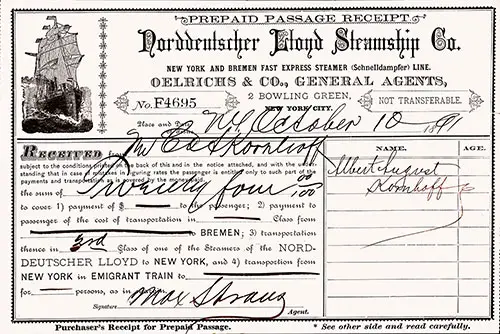 PREPAID PASSAGE RECEIPT
Norddeutscher Lloyd Steamship Co.
NEW YORK AND BREMEN FAST EXPRESS STEAMER (Schnelldampfer) LINE.
OELRICHS & CO., GENERAL AGENTS,
2 BOWLING GREEN,
NEW YORK CITY.
No. F4695
NOT TRANSFERABLE.
Place and Date NY October 10 1891
Received from Mr Ed Kornhoff
subject to the conditions printed on the back of this and in the notice attached, and with the under-
standing that in case of mistakes in figuring rates the passenger is entitled only to such part of the
payments and transportation as is covered by the money paid.
the sum of Twenty four 00/100
to cover 1) payment of $ to the passenger; 2) payment to
passenger of the cost of transportation in Class from
to BREMEN; 3) transportation
thence in 3rd Class of one of the Steamers of the NORD-
DEUTSCHER LLOYD to NEW YORK, and 4) transportion from
NEW YORK in EMIGRANT TRAIN to
for persons, as in
Signature Max Straus Agent.
NAME. AGE.
Albert August
Kornhoff
Purchaser's Receipt for Prepaid Passage.
* See other side and read carefully.